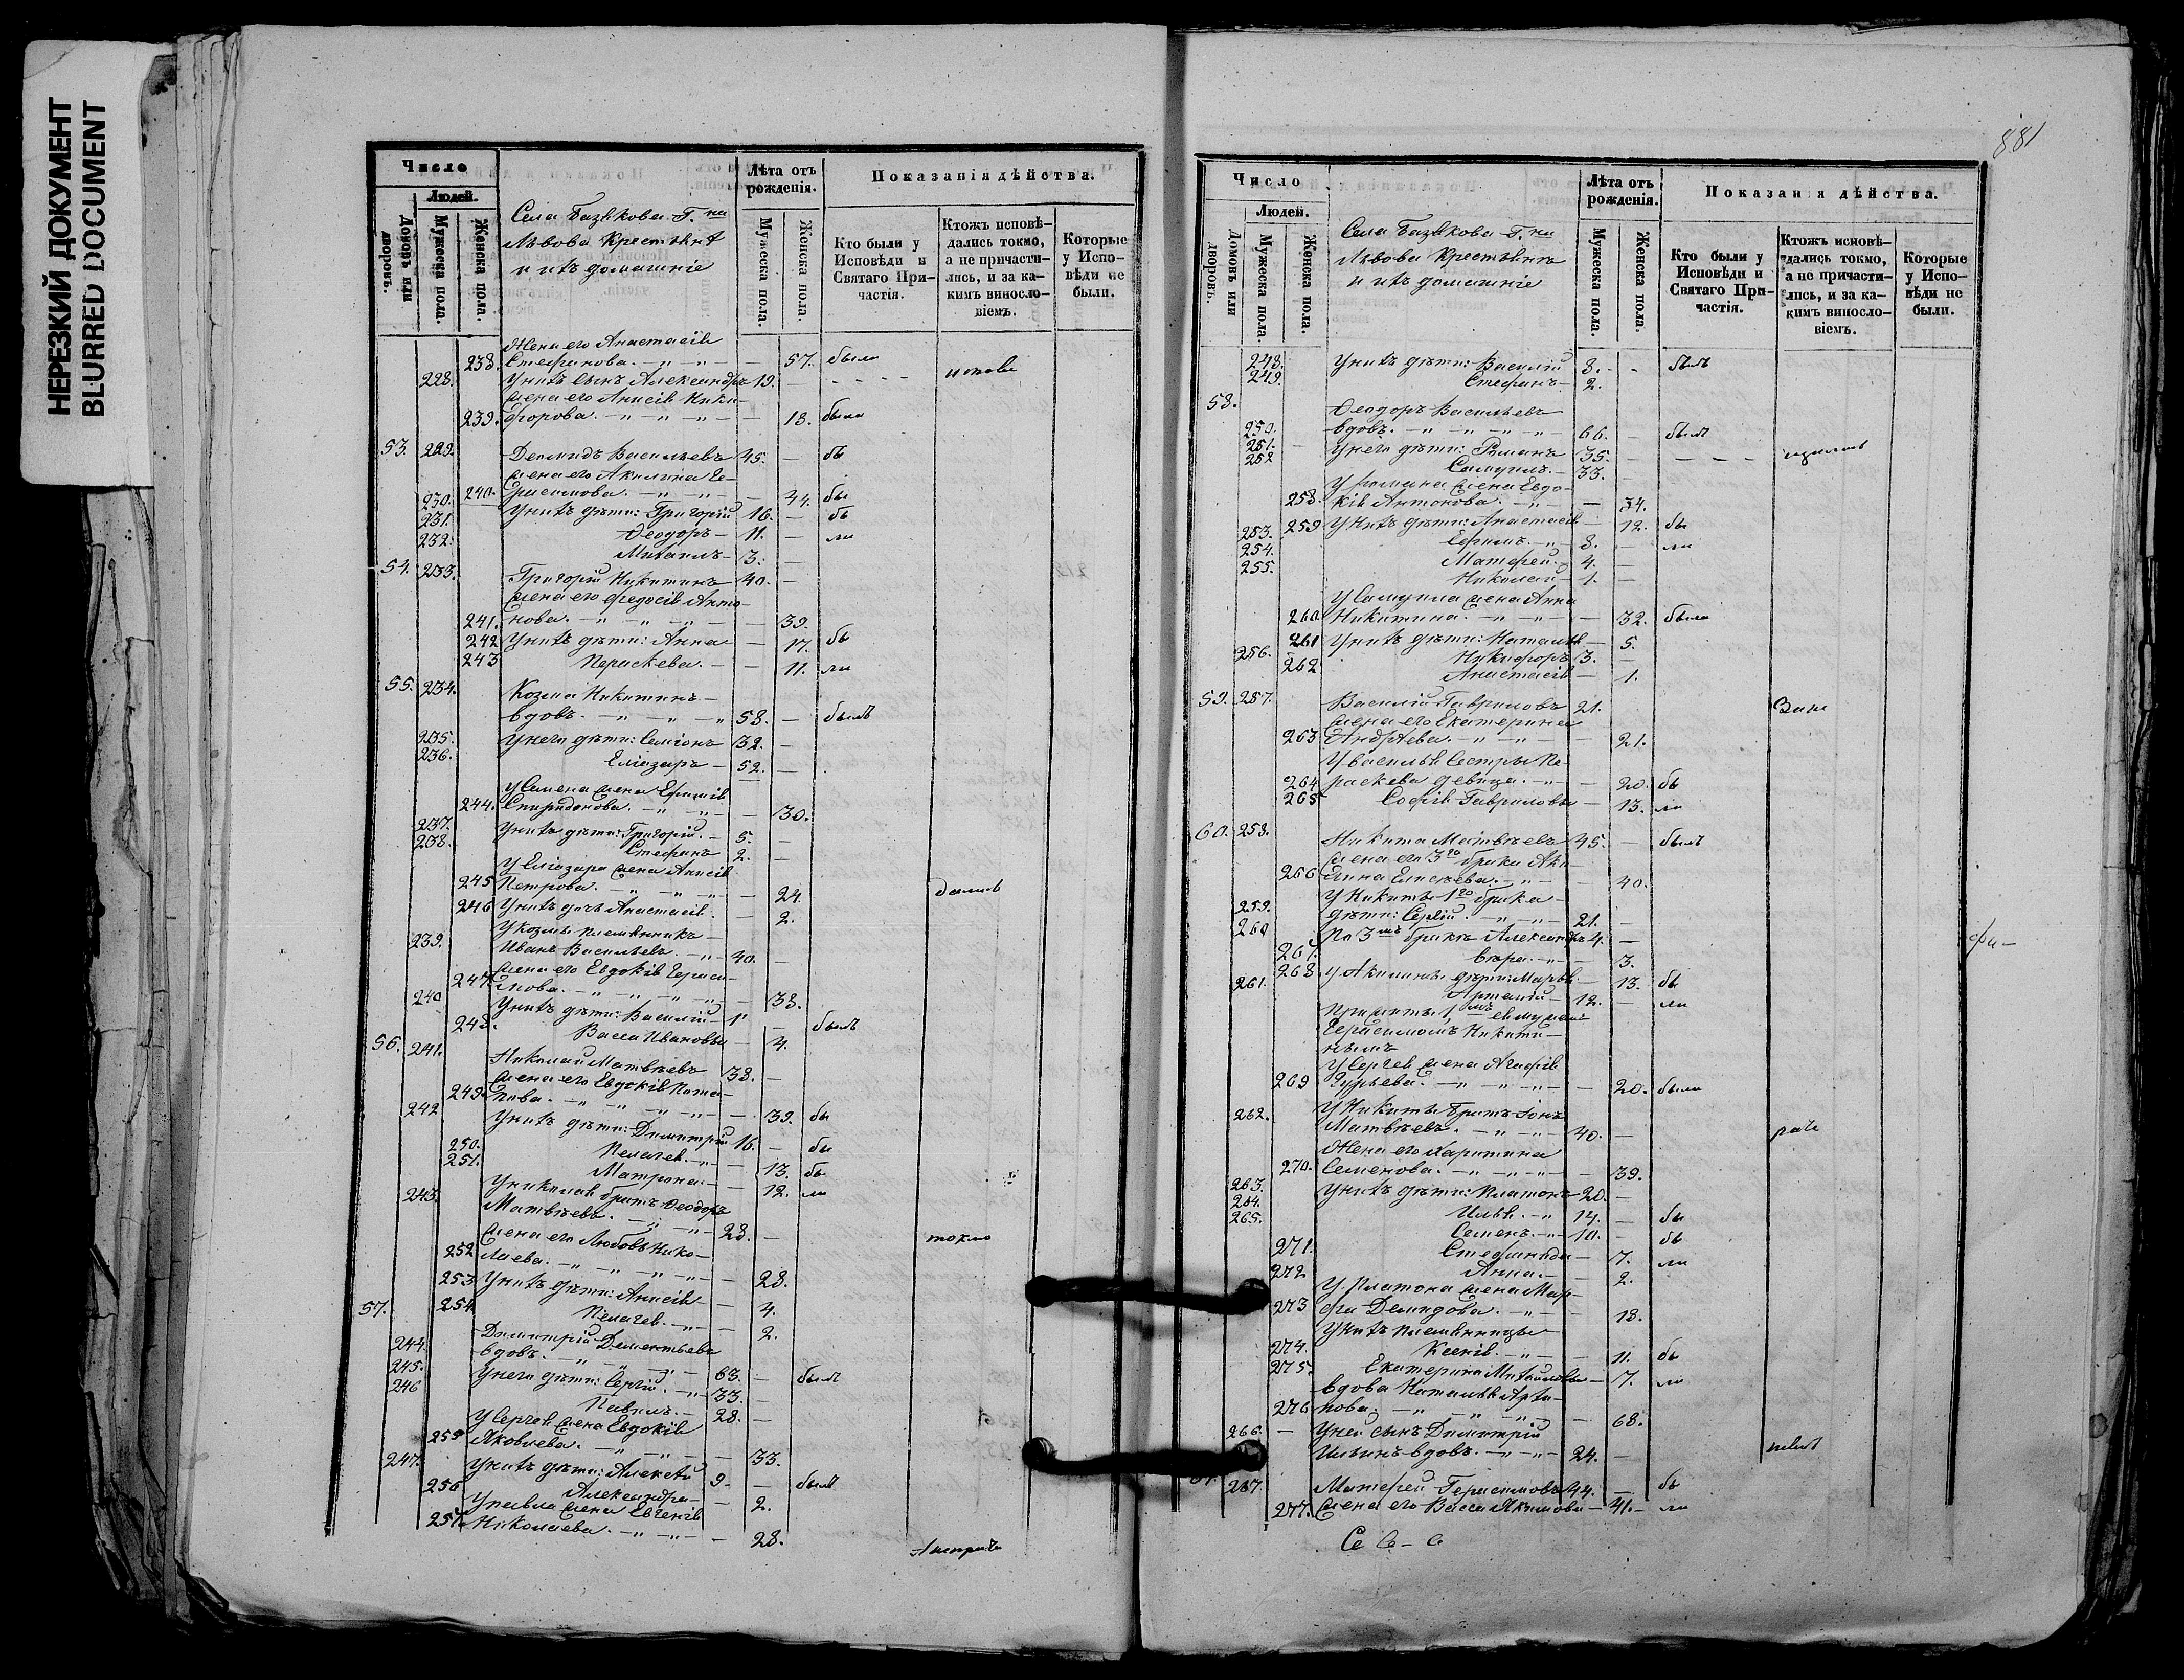 НЕРЕЗКИЙ ДОКУМЕНТ
BLURRED DOCUMENT
Число
Людей.
Домовъ или дворовъ.
Мужеска пола.
Женска пола.
Села Базѣкова Г.ни
Львова Крестьяне
и ихъ домашніе
Лѣта отъ рожденія.
Мужеска пола.
Женска пола.
Показанія дѣйства.
Кто были у Исповѣди и Святаго Причастія.
Ктожъ исповѣдались токмо, а не причастились, и за какимъ винословіемъ.
Которые у Исповѣди не были.
Жена его Анастасія
238. Стефанова. 57. была
228. У нихъ сынъ Александръ 19.
Жена его Анисія Ники-
239. форова. 18. была
53. 229. Демидъ Васильевъ 45. бы
жена его Акилина Ге-
240. расимова. 44. бы
230. У нихъ дѣти: Григорій 16. бы
231. Ѳеодоръ 11. ли
232. Михаилъ 3.
54. 233. Григорій Никитинъ 40.
жена его Ѳедосія Анто-
241. нова. 39.
242 У нихъ дѣти: Анна 17. бы
243 Параскева. 11. ли
55. 234. Козма Никитинъ
вдовъ. 58. былъ
235. У него дѣти: Симеонъ 32.
236. Еліазаръ 52.
У Симена жена Ефимія
244. Спиридонова. 30.
237. У нихъ дѣти: Григорій. 5.
238. Стефанъ 2.
У Еліазара жена Анисія
245 Петрова. 24. дались
246 У нихъ дочь Анастасія. 2.
У Козмы племянникъ
239. Иванъ Васильевъ. 40.
жена его Евдокія Гераси-
247. мова. 38.
240 У нихъ дѣти: Василій 1 былъ
248. Васса Ивановы 4.
56. 241. Николай Матвѣевъ 38.
жена его Евдокія Пота-
249. пова. 39. бы
242 У нихъ дѣти: Димитрій 16. бы
250. Пелагея. 13. бы
251. Матрона. 12. ли
У Николая братъ Ѳеодоръ
243. Матвѣевъ. 28. токмо
жена его Любовь Нико-
252 лаева. 28.
253 У нихъ дѣти: Анисія 4.
254 Пелагея. 2.
57. Димитрій Дементьевъ
244. вдовъ. 63. былъ
245. У него дѣти: Сергій. 33.
246 Павелъ. 28.
У Сергея жена Евдокія
255 Яковлева. 33.
247. У нихъ дѣти: Алексѣй 9. былъ
256 Александра 2.
У Павла жена Евгенія
257. Николаева. 28.
881
Число
Людей.
Домовъ или дворовъ.
Мужеска пола.
Женска пола.
Села Базѣкова Г.ни
Львова Крестьяне
и ихъ домашніе
Лѣта отъ рожденія.
Мужеска пола.
Женска пола.
Показанія дѣйства.
Кто были у Исповѣди и Святаго Причастія.
Ктожъ исповѣдались токмо, а не причастились, и за какимъ винословіемъ.
Которые у Исповѣди не были.
248. У нихъ дѣти: Василій 8. былъ
249. Стефанъ 2.
58. Ѳеодоръ Васильевъ
250. вдовъ. 66. былъ
251. У него дѣти: Романъ 35.
252 Самуилъ. 33.
У Романа жена Евдо-
258. кія Антонова. 34.
259 У нихъ дѣти: Анастасія 12. бы
253. Ефимъ. 8. ли
254. Матфей 4.
255. Николай 1.
У Самуила жена Анна
260 Никитина. 32. была
261 У нихъ дѣти: Наталья 5.
256. Никифоръ 3.
262 Анастасія 1.
59. 257. Василій Гавриловъ 21.
жена его Екатерина
263 Андрѣева. 21.
У Василья сестры Па-
264 раскева девица. 20. бы
265 Софія Гавриловы 13. ли
60. 258. Никита Матвѣевъ 45. былъ
жена его 3го брака Аки-
266 лина Елисѣева. 40.
У Никиты 1го брака
259. дѣти: Сергій. 21.
260 По 3мъ бракѣ Александръ 4.
267. Вѣра. 3.
268 У Акилины дѣти: Марья 13. бы
261. Артамій 12. ли
прижиты 1мъ ея мужемъ
Герасимомъ Никити-
нымъ
У Сергея жена Агафія
269 Гурьева. 20. была
У Никиты братъ Іона
262. Матвѣевъ. 40.
Жена его Харитина
270. Семенова. 39.
263. У нихъ дѣти: Платонъ 20.
264. Илья. 14. бы
265. Семенъ. 10. бы
271. Стефанида 7. ли
272 Анна. 2.
У Платона жена Мар-
273 фа Демидова. 18.
У нихъ племянницы
274. Ксенія. 11. бы
275. Екатерина Михайловы 7. ли
вдова Наталья Арта-
276 нова. 68.
266. У ней сынъ Димитрій
Ильинъ вдовъ. 24.
267. Матфей Герасимовъ 44. бы
277. жена его Васса Акимова 41. ли